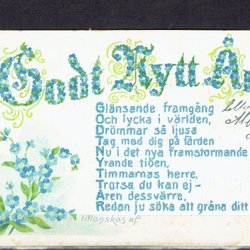 Godt Nytt Å
Glänsande framgång
Och lycka i världen,
Drömmar så ljusa
Tag med dig på färden
Nu i det nya framstormande
Yrande tiden,
Timmarnas herre,
Trotsa du kan ej –
Åren dessvärre,
Redan ju söka att gråna ditt
tillönskas af